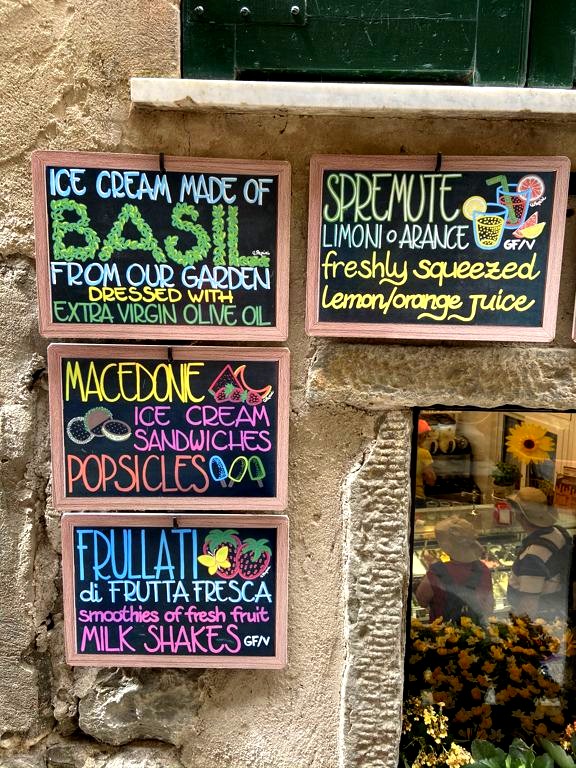 ICE CREAM MADE OF
BASIL
FROM OUR GARDEN
DRESSED WITH
EXTRA VIRGIN OLIVE OIL
SPREMUTE
LIMONI o ARANCE
GF/V
freshly squeezed
lemon/orange juice
MACEDONIE
ICE CREAM
SANDWICHES
POPSICLES
FRULLATI
di FRUTTA FRESCA
smoothies of fresh fruit
MILK SHAKES GF/V